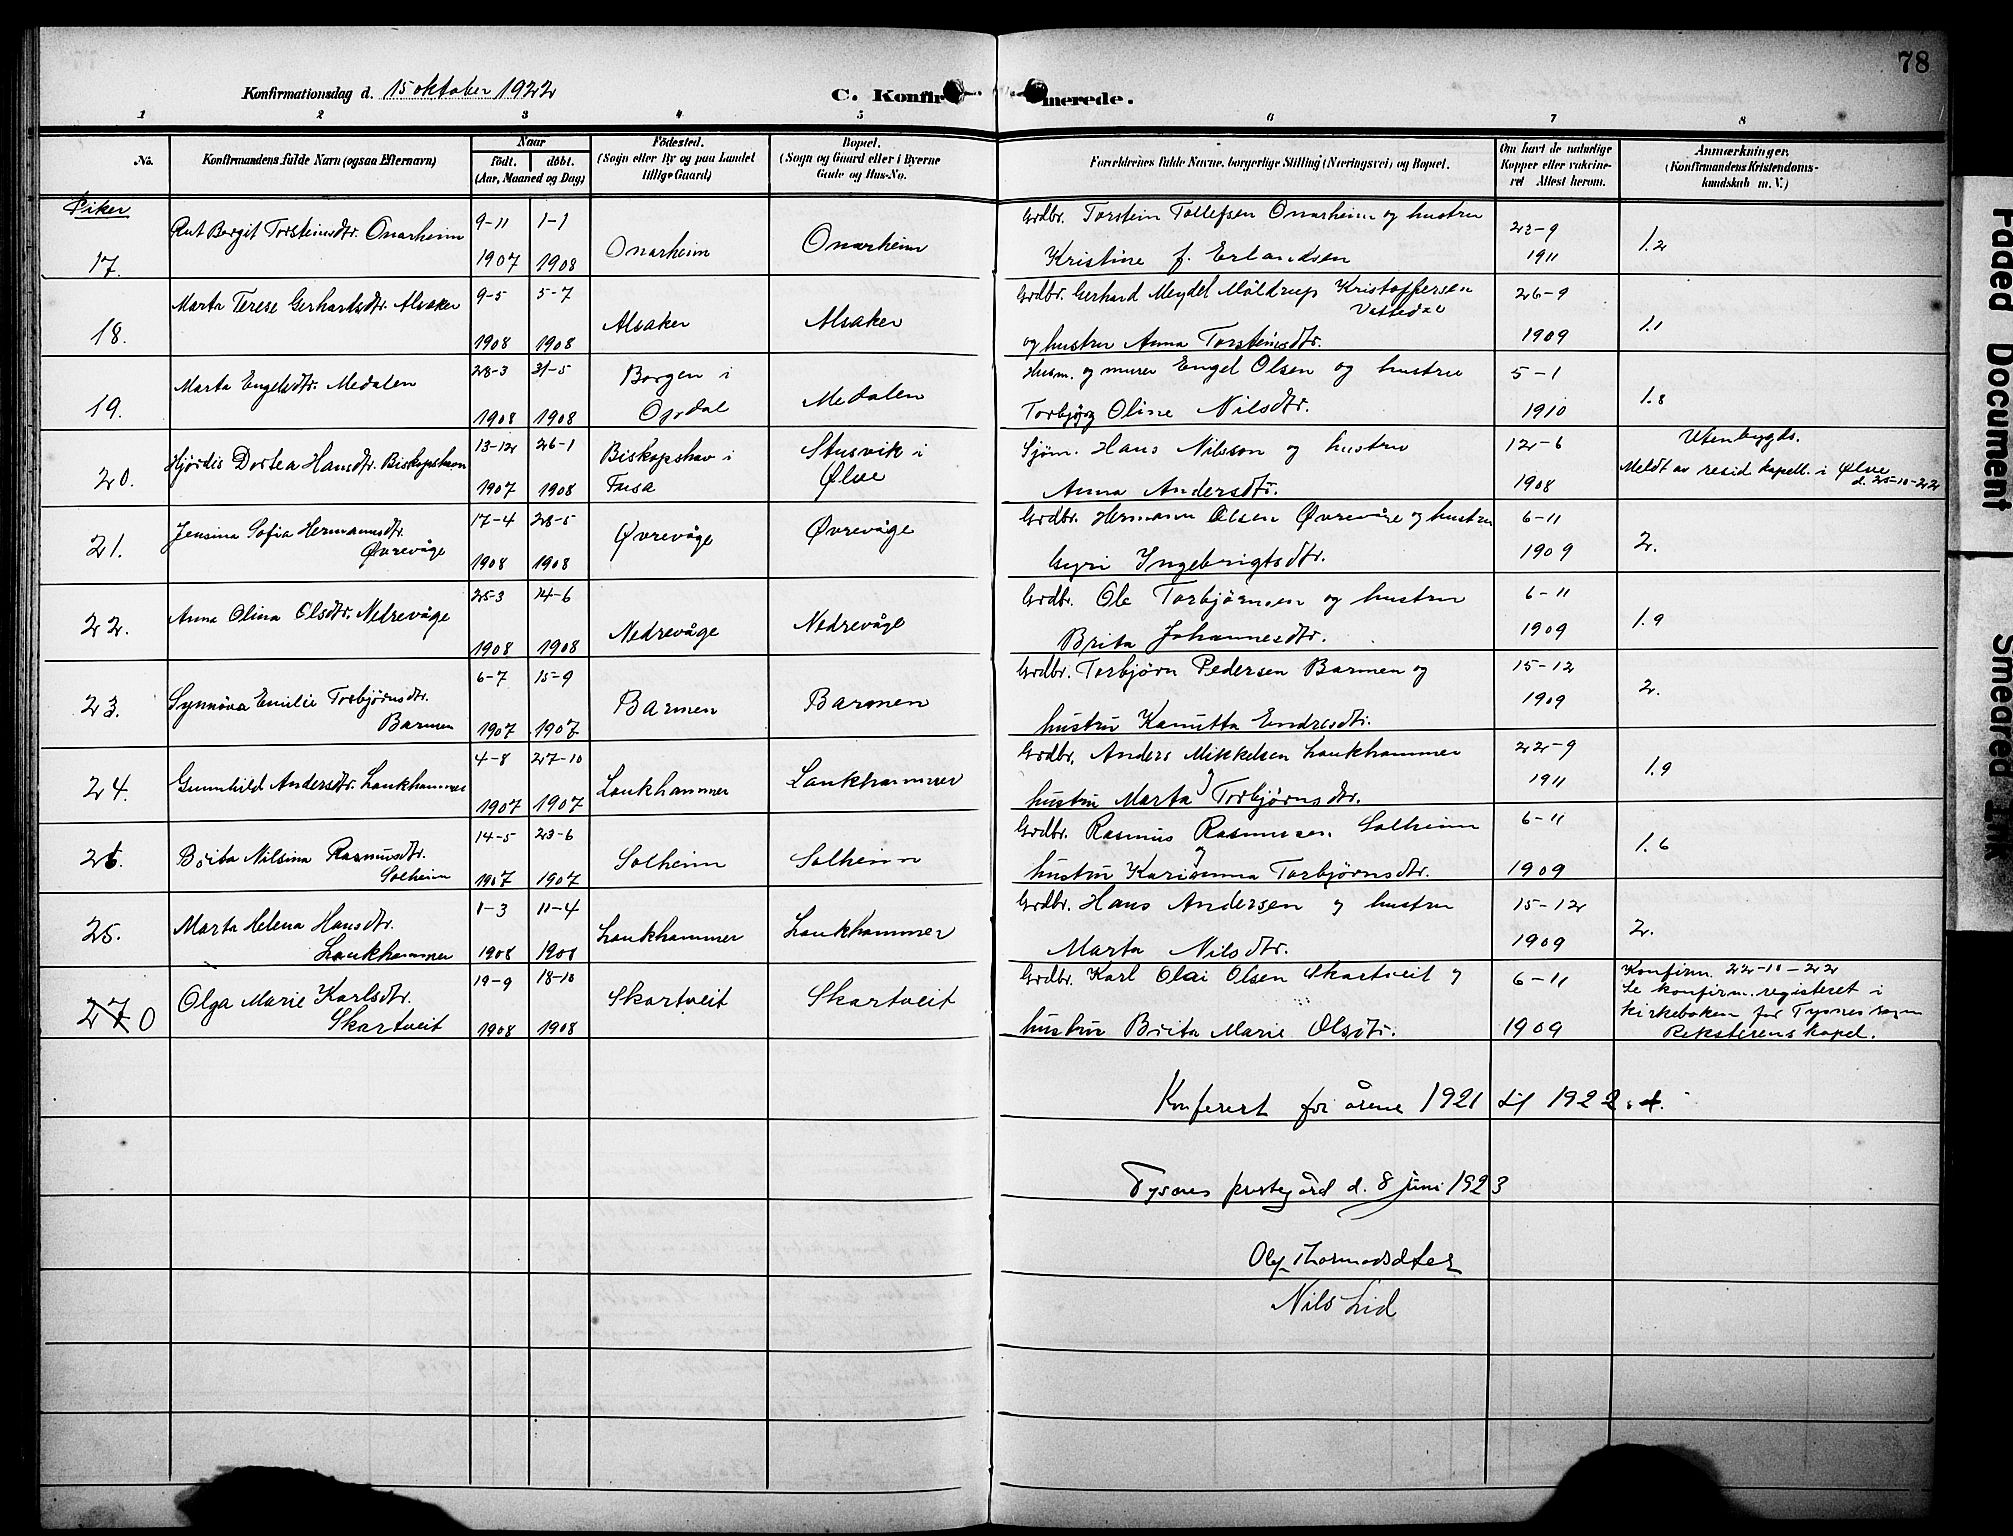 78
Konfirmationsdag d. 15 oktober 1922
C. Konfirmerede.
1 2 3 4 5 6 7 8
No.
Konfirmandens fulde Navn (ogsaa Efternavn)
Naar
født. døbt.
(Aar, Maaned og Dag)
Fødested.
(Sogn eller By og paa Landet
tillige Gaard)
Bopæl.
(Sogn og Gaard eller i Byerne
Gade og Hus-No.
Forældrenes fulde Navne, borgerlige Stilling (Næringsvei) og Bopæl.
Om havt de naturlige
Kopper eller vaksine-
ret Attest herom.
Anmærkninger.
(Konfirmandens Kristendoms-
kundskab m. V.)
Piker
17. Rut Bergit Torsteinsdtr. Onarheim 9-11 1907 1-1 1908 Onarheim Onarheim
Grdbr. Torstein Tollefsen Onarheim og hustru
Kristine f. Erlandsen 22-9 1911 1.2
18. Marta Terese Gerhartsdtr. Alsaker 9-5 1908 5-7 1908 Alsaker Alsaker
Grdbr. Gerhard Meydel Møldrup Kristoffersen
Vattedal
og hustru Anna Torsteinsdtr. 26-9 1909 1.1
19. Marta Engelsdtr. Medalen 28-3 1908 31-5 1908 Borgen i
Opdal Medalen
Husm. og murer Engel Olsen og hustru
Torbjørg Oline Nilsdtr. 5-1 1910 1.8
20. Hjørdis Dortea Hansdtr. Biskopshavn 13-12 1907 26-1 1908 Biskopshav i
Fusa Stusvik i
Ølve
Sjøm. Hans Nilsson og hustru
Anna Andersdtr. 12-6 1908 Utenbygds.
Meldt av resid. kapell. i Ølve
d. 25-10-22
21. Jensina Sofia Hermannsdtr.
Øvrevåge 17-4 1908 28-5 1908 Øvrevåge Øvrevåge
Grdbr. Hermann Olsen Øvrevåge og hustru
Gyri Ingebrigtsdtr. 6-11 1909 2.
22. Anna Olina Olsdtr. Nedrevåge 25-3 1908 14-6 1908 Nedrevåge Nedrevåge
Grdbr. Ole Torbjørnsen og hustru
Brita Johannesdtr. 6-11 1909 1.9
23. Synnøva Emilie Torbjørnsdtr.
Barmen 6-7 1907 15-9 1907 Barmen Barmen
Grdbr. Torbjørn Pedersen Barmen og
hustru Kanutta Endresdtr. 15-12 1909 2.
24. Gunnhild Andersdtr. Laukhammer 4-8 1907 27-10 1907 Laukhammer Laukhammer
Grdbr. Anders Mikkelsen Laukhammer
og
hustru Marta Torbjørnsdtr. 22-9 1911 1.9
26. Brita Nilsina Rasmusdtr.
Solheim 14-5 1907 23-6 1907 Solheim Solheim
Grdbr. Rasmus Rasmussen Solheim
og
hustru Karianna Torbjørnsdtr. 6-11 1909 1.6
25. Marta Helena Hansdtr.
Laukhammer 1-3 1908 11-4 1908 Laukhammer Laukhammer
Grdbr. Hans Andersen og hustru
Marta Nilsdtr. 15-12 1909 2.
27 0 Olga Marie Karlsdtr.
Skartveit 19-9 1908 18-10 1908 Skartveit Skartveit
Grdbr. Karl Olai Olsen Skartveit og
hustru Brita Marie Olsdtr. 6-11 1909 Konfirm. 22-10-22
Se konfirm.registeret i
kirkeboken for Tysnes sogn
Reksterens kapel.
Konferert for årene 1921 til 1922
Tysnes prestegård d. 8 juni 1923
Nils Lid
Faded Document
Smeared Ink